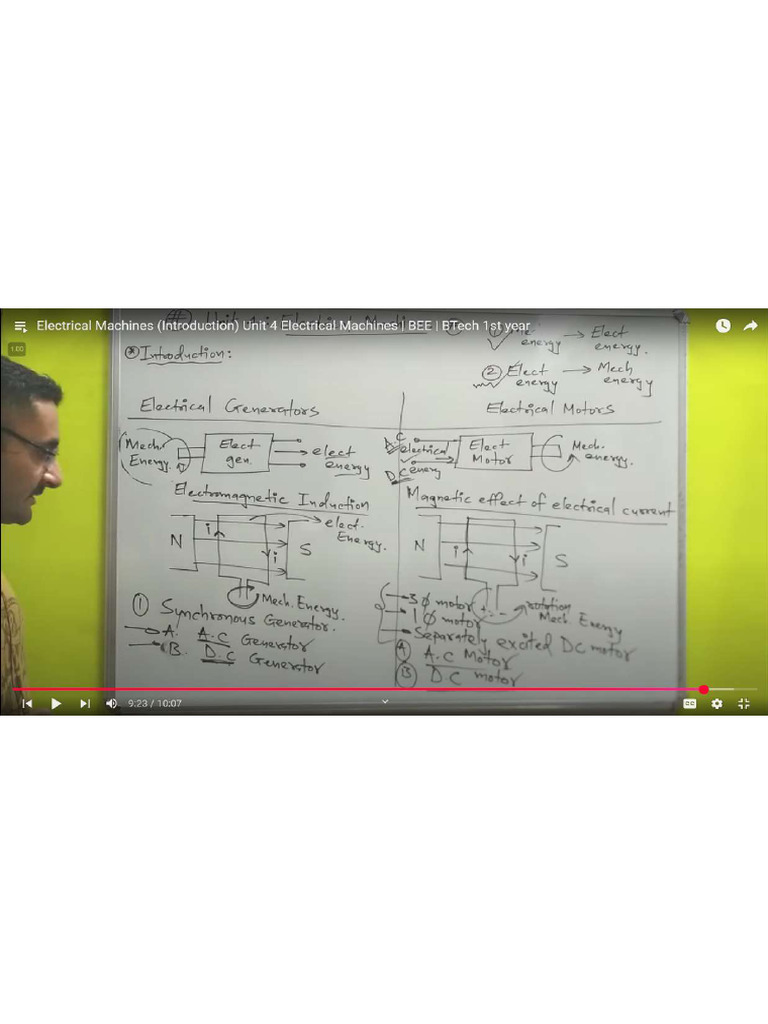 Electrical Machines (Introduction) Unit 4 Electrical Machines | BEE | BTech 1st year
1:00
① → Elect
energy energy.
* Introduction:
② Elect → Mech
energy energy
Electrical Generators
Electrical Motors
Mech.
Energy.
Elect
gen.
elect
energy
A.C
electrical
energy
DC
Elect
Motor
Mech.
energy.
Electromagnetic Induction
Magnetic effect of electrical current
N
i
i
S
elect.
Energy.
Mech. Energy.
N
i
i
S
rotation
Mech. Energy
① Synchronous Generator.
→ A. A.C Generator
→ B. D.C Generator
→ 3ϕ motor
→ 1ϕ motor
→ Separately excited DC motor
Ⓐ A.C Motor
Ⓑ DC motor
9:23 / 10:07
CC